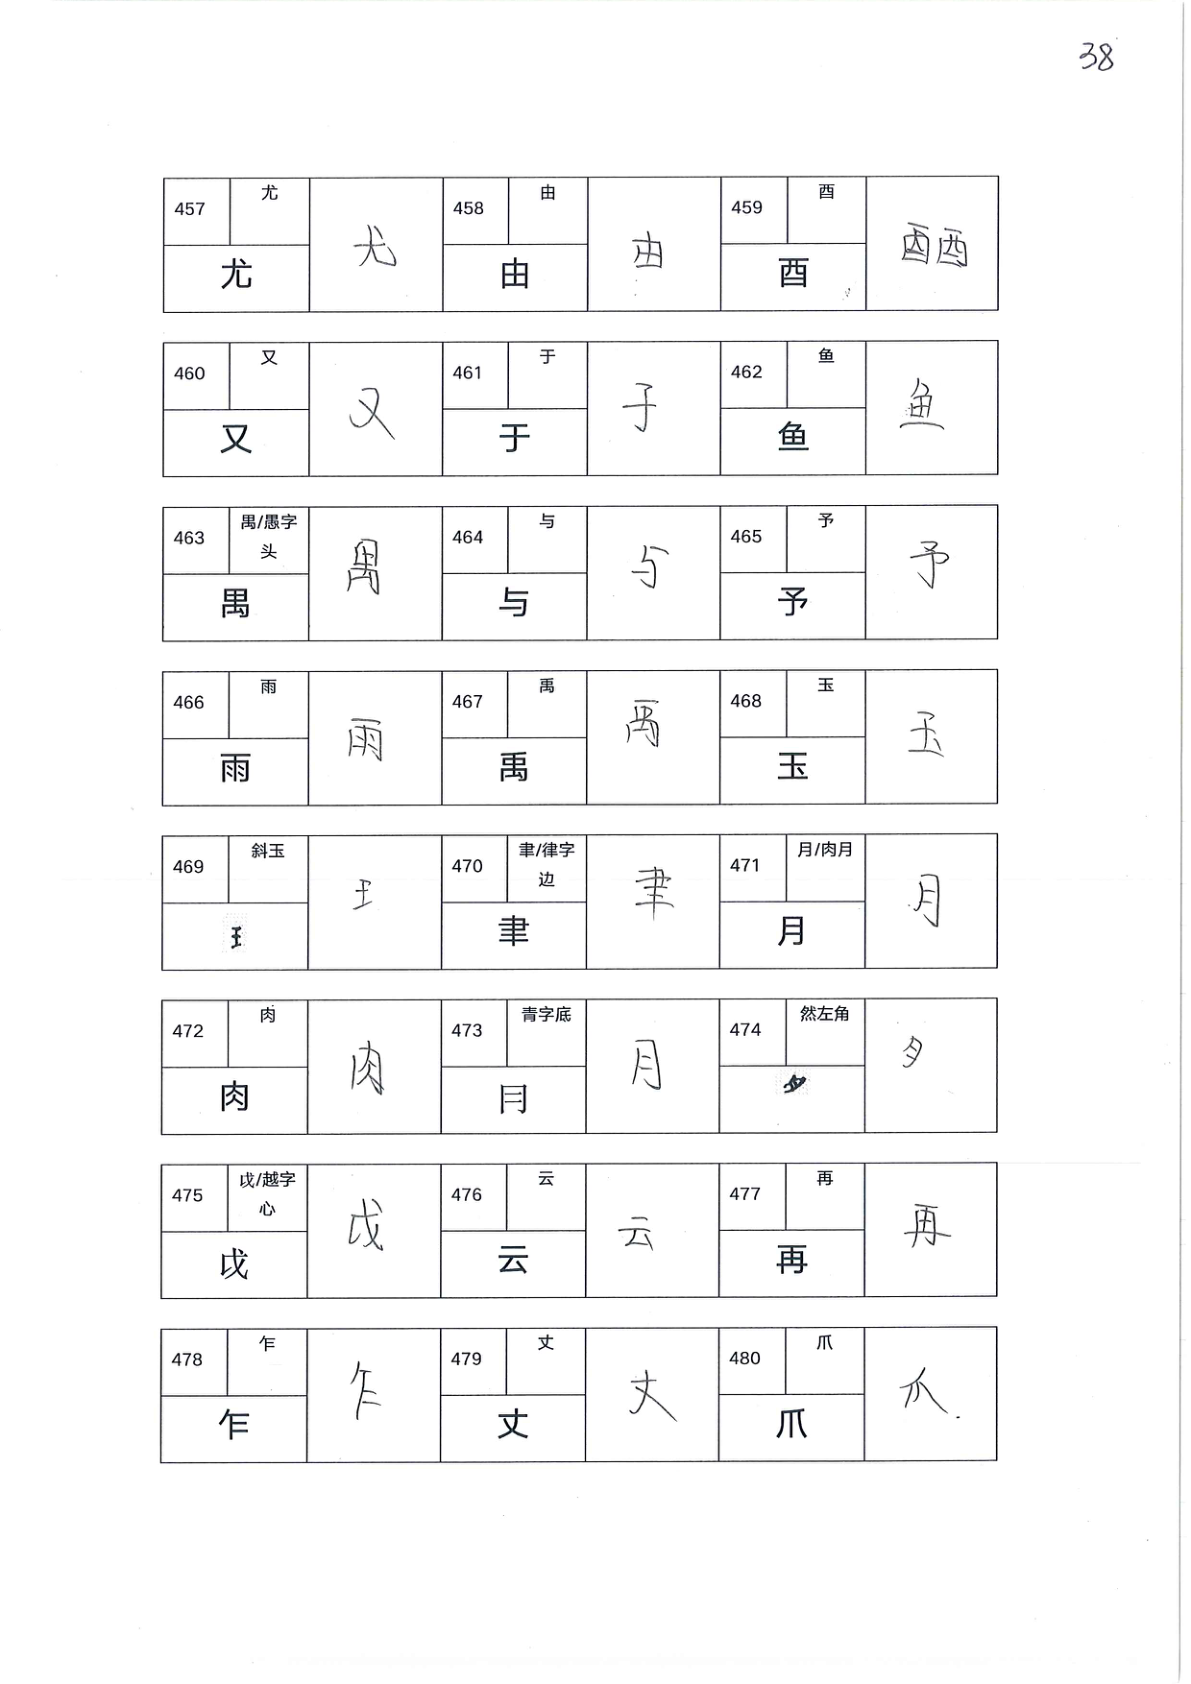 38
457 尤 尤 458 由 由 459 酉 酉酉
尤 由 酉
460 又 又 461 于 于 462 鱼 鱼
又 于 鱼
463 禺/愚字头 禺 464 与 与 465 予 予
禺 与 予
466 雨 雨 467 禹 禹 468 玉 玉
雨 禹 玉
469 斜玉 王 470 聿/律字边 聿 471 月/肉月 月
王 聿 月
472 肉 肉 473 青字底 月 474 然左角
肉 円
475 戉/越字心 戉 476 云 云 477 再 再
戉 云 再
478 乍 乍 479 丈 丈 480 爪 爪
乍 丈 爪